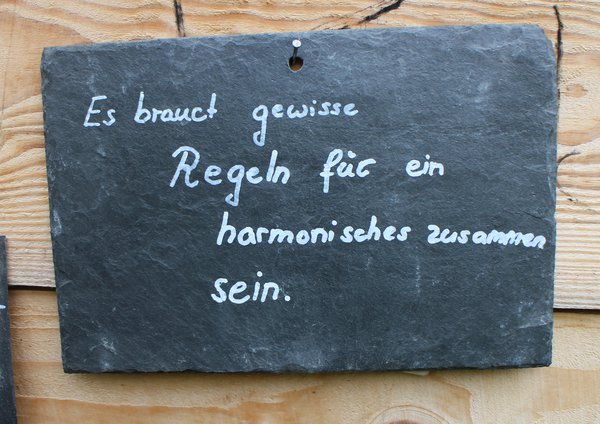 Es brauct gewisse
Regeln für ein
harmonisches zusammen
sein.